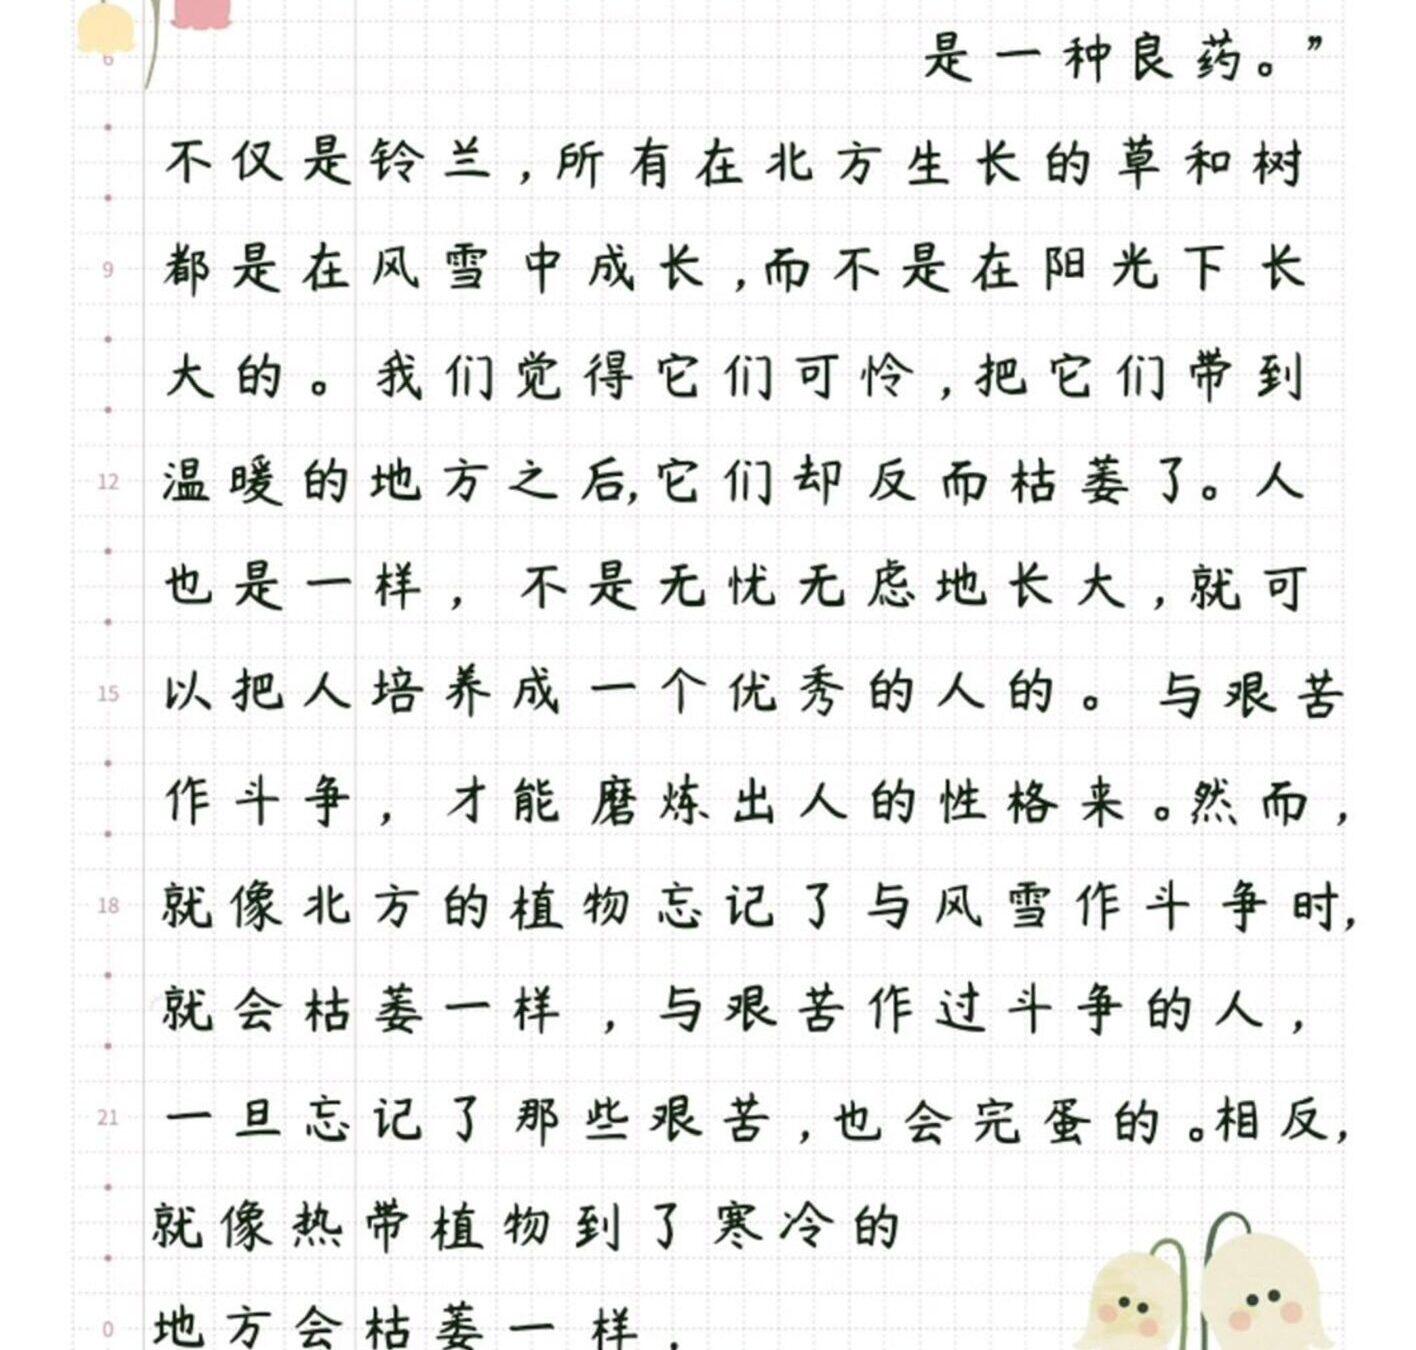 6
是一种良药。”
不仅是铃兰,所有在北方生长的草和树
9
都是在风雪中成长,而不是在阳光下长
大的。我们觉得它们可怜,把它们带到
12
温暖的地方之后,它们却反而枯萎了。人
也是一样,不是无忧无虑地长大,就可
15
以把人培养成一个优秀的人的。与艰苦
作斗争,才能磨炼出人的性格来。然而,
18
就像北方的植物忘记了与风雪作斗争时,
就会枯萎一样,与艰苦作过斗争的人,
21
一旦忘记了那些艰苦,也会完蛋的。相反,
就像热带植物到了寒冷的
0
地方会枯萎一样,